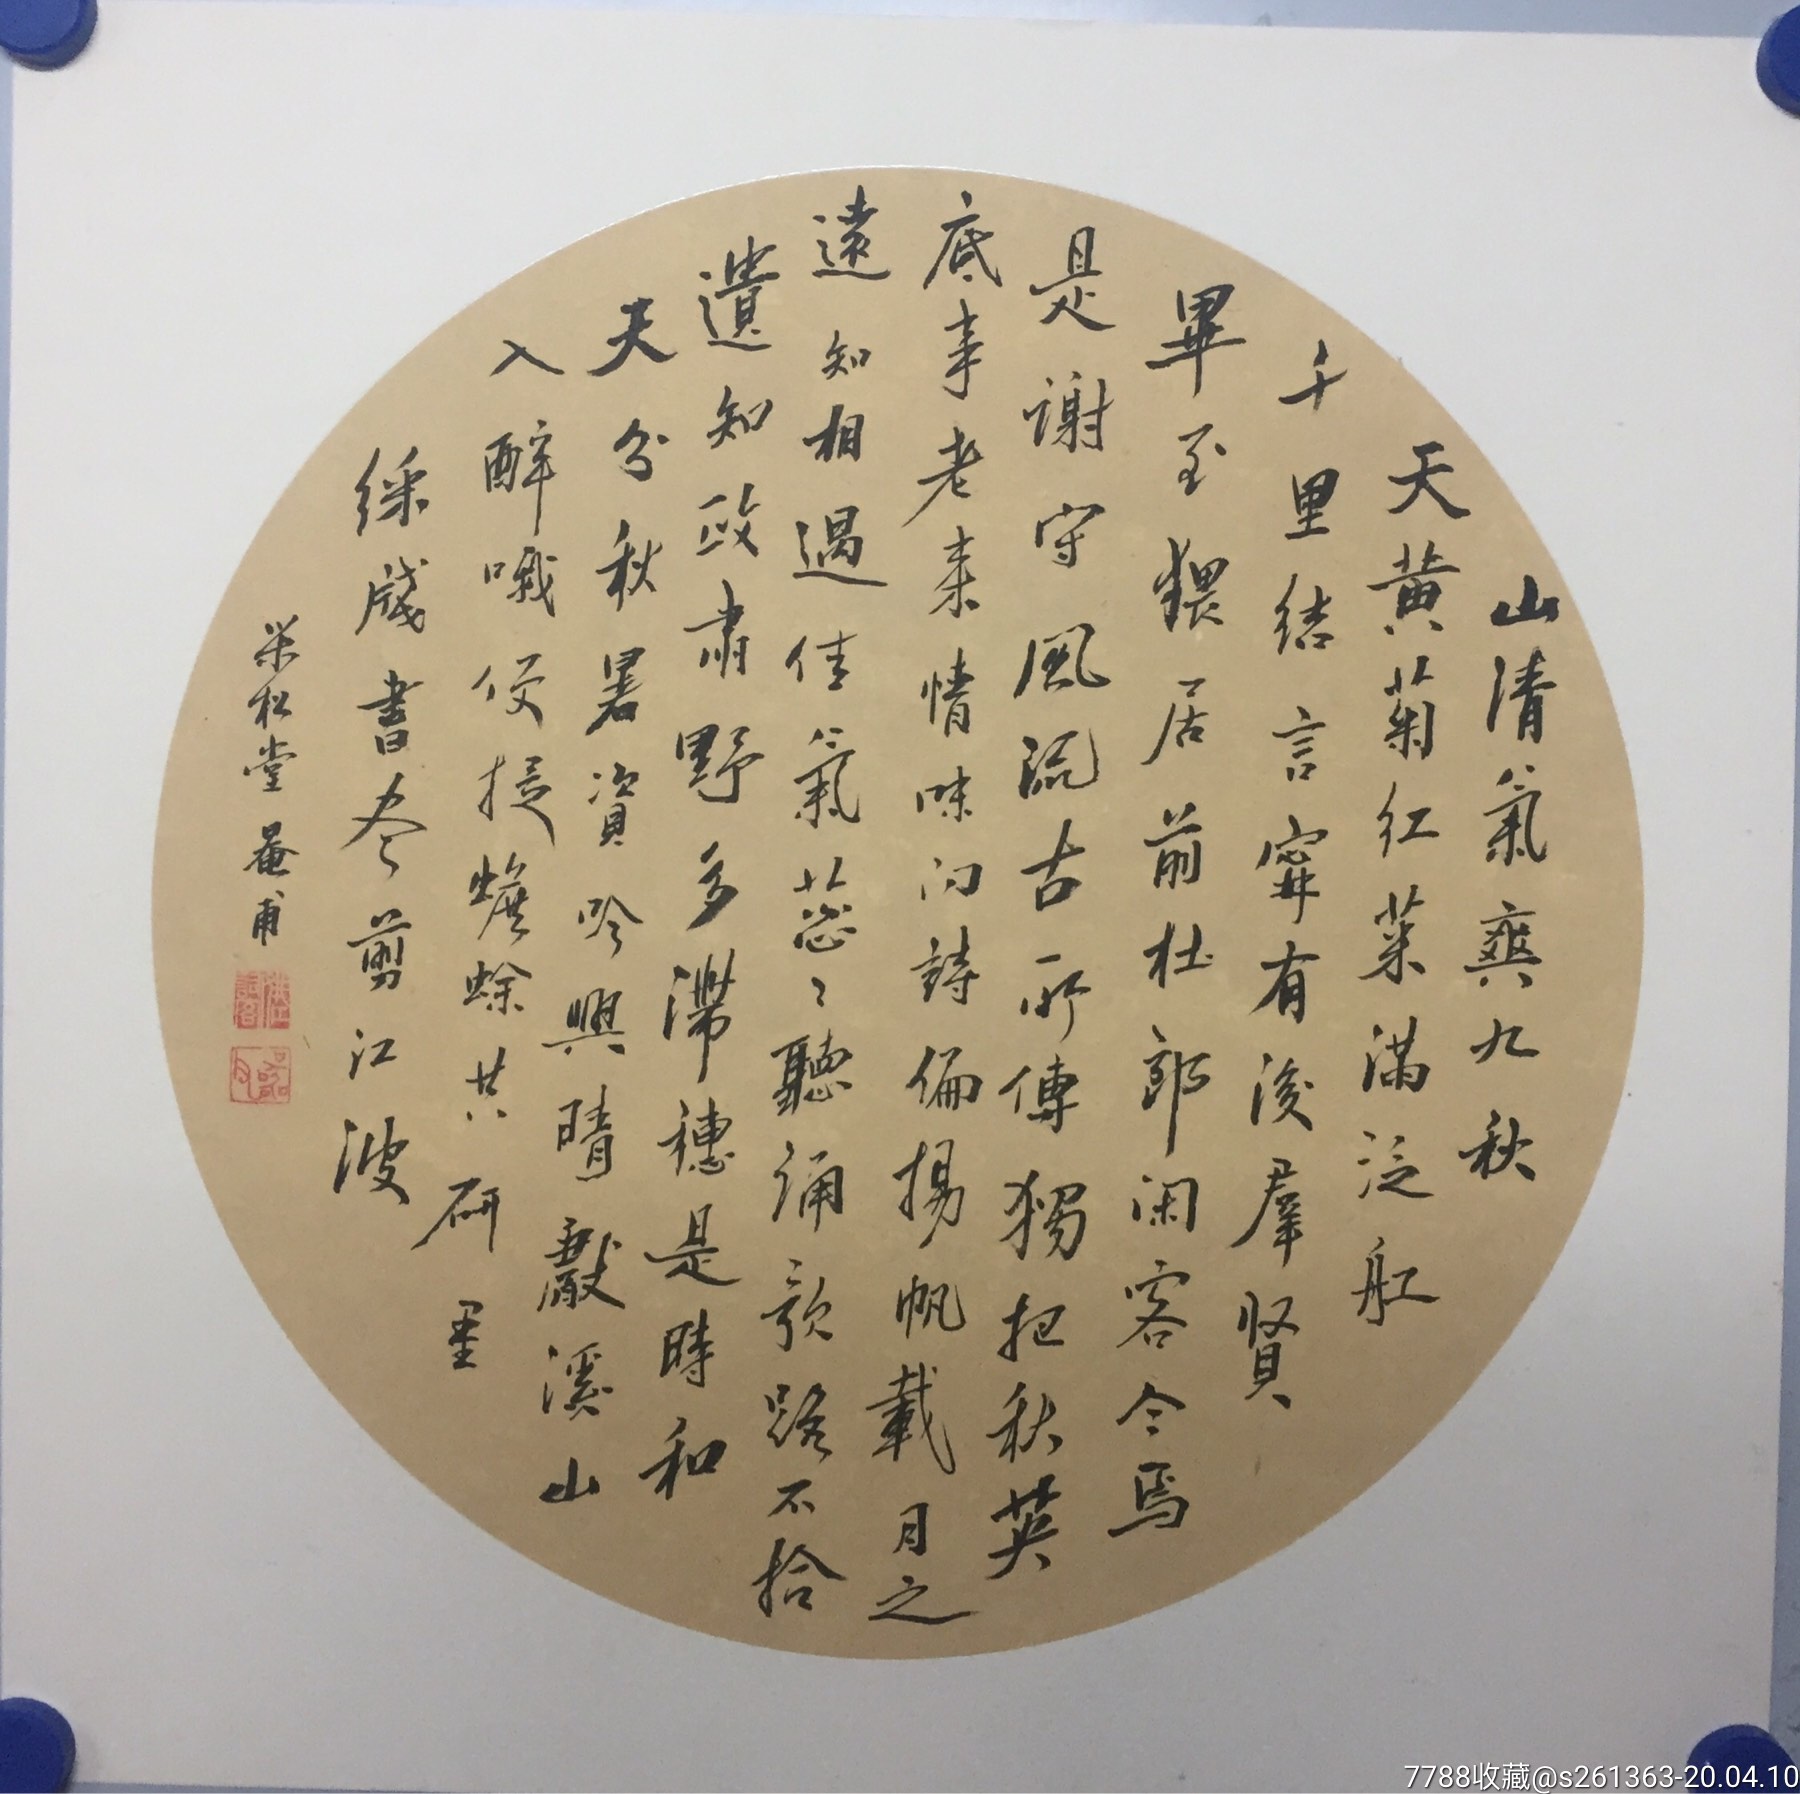 山清氣爽九秋
天黄菊红葉满泛舡
千里结言寧有後群賢
畢至猥居前杜郎闲客今焉
是谢守風流古所傳獨把秋英
底事老来情味向詩偏揚帆載月之
遠知相過佳氣葱〻聽诵歌路不拾
遺知政肃野多滞穗是時和
天分秋暑資吟興晴獻溪山
入醉哦便捉蟾蜍共研墨
綵牋書尽剪江波
松堂
甫
7788收藏@s261363-20.04.10